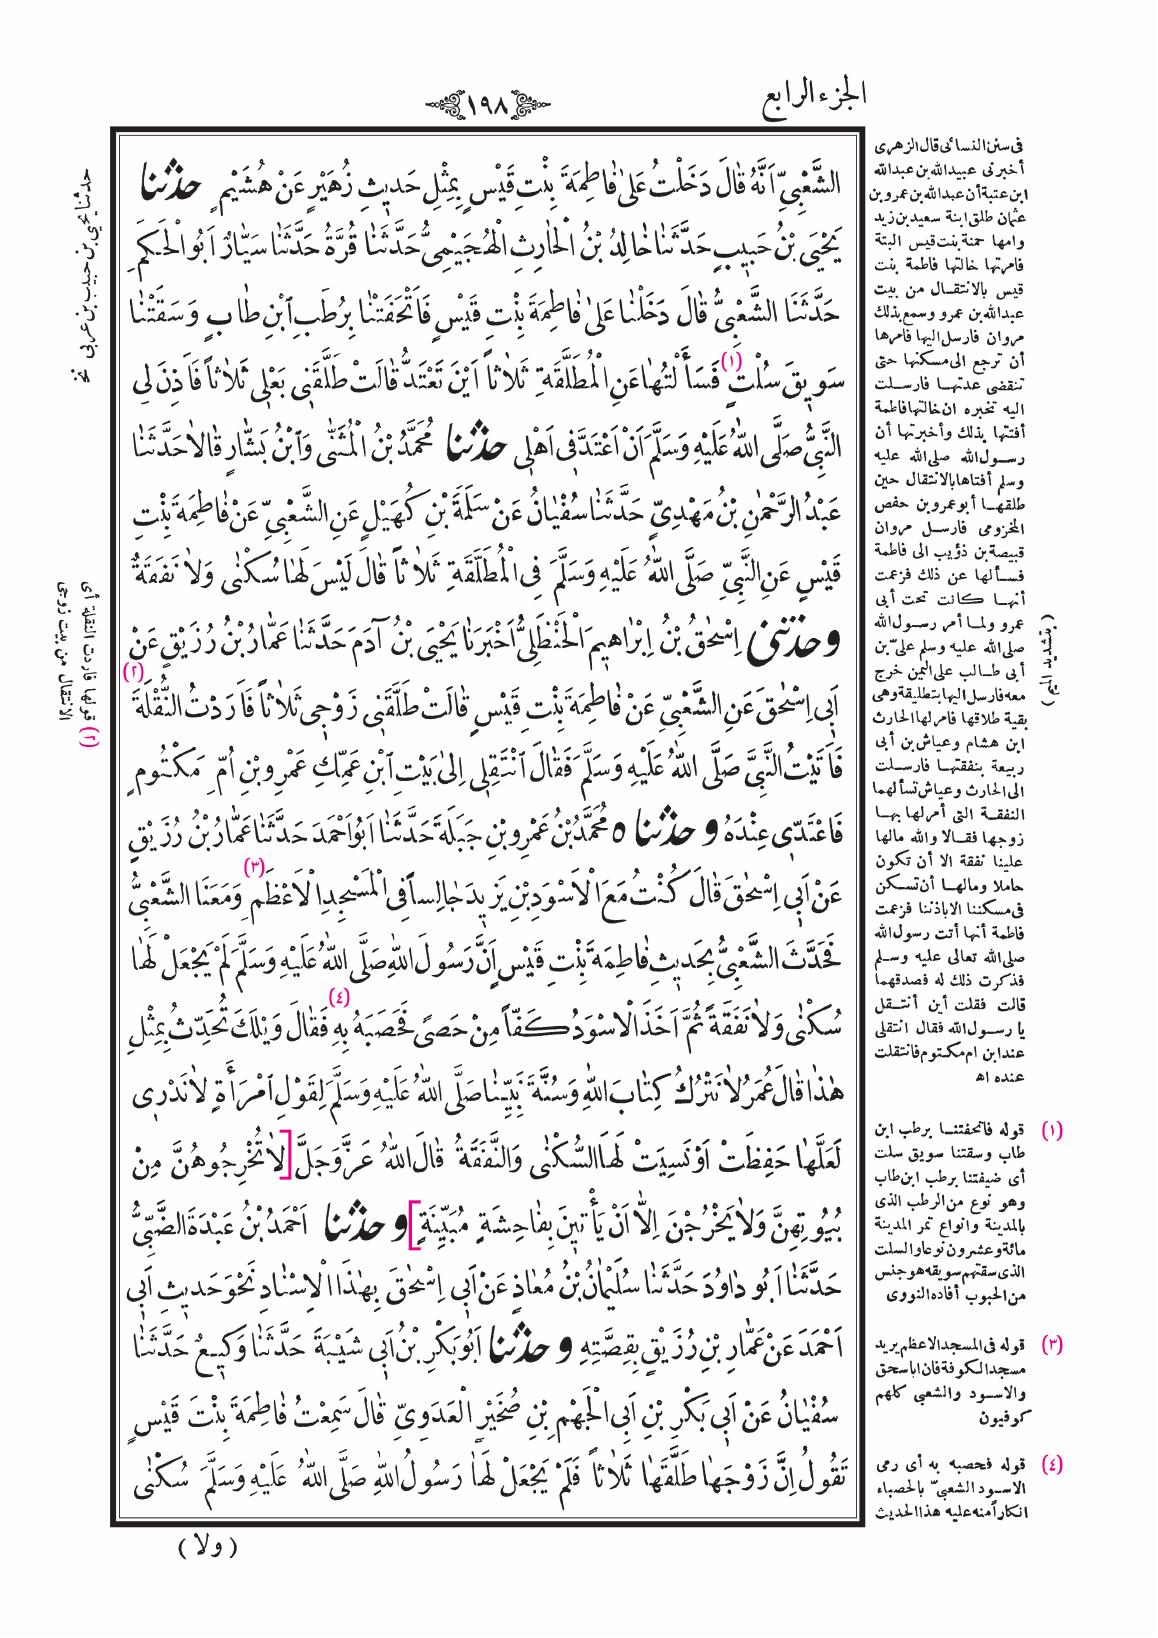 الجزء الرابع
١٩٨
الشَّعْبِيِّ اَنَّهُ قَالَ دَخَلْتُ عَلىٰ فَاطِمَةَ بِنْتِ قَيْسٍ بِمِثْلِ حَديثِ زُهَيْرٍ عَنْ هُشَيْمٍ حدثنا
يَحْيَى بْنُ حَبيبٍ حَدَّثَنَا خَالِدُ بْنُ الْحَارِثِ الْهُجَيْمِىُّ حَدَّثَنَا قُرَّةُ حَدَّثَنَا سَيَّارٌ اَبُو الْحَكَمِ
حَدَّثَنَا الشَّعْبِىُّ قَالَ دَخَلْنَا عَلىٰ فَاطِمَةَ بِنْتِ قَيْسٍ فَاَتْحَفَتْنَا بِرُطَبِ ابْنِ طَابٍ وَسَقَتْنَا
سَويقَ سُلْتٍ (١) فَسَأَلْتُهَا عَنِ الْمُطَلَّقَةِ ثَلاٰثاً اَيْنَ تَعْتَدُّ قَالَتْ طَلَّقَنى بَعْلى ثَلاٰثاً فَاَذِنَ لِى
النَّبِىُّ صَلَّى اللهُ عَلَيْهِ وَسَلَّمَ اَنْ اَعْتَدَّ فى اَهْلى حدثنا مُحَمَّدُ بْنُ الْمُثَنّٰى وَابْنُ بَشَّارٍ قَالاٰ حَدَّثَنَا
عَبْدُ الرَّحْمٰنِ بْنُ مَهْدِىٍّ حَدَّثَنَا سُفْيَانُ عَنْ سَلَمَةَ بْنِ كُهَيْلٍ عَنِ الشَّعْبِىِّ عَنْ فَاطِمَةَ بِنْتِ
قَيْسٍ عَنِ النَّبِىِّ صَلَّى اللهُ عَلَيْهِ وَسَلَّمَ فِى الْمُطَلَّقَةِ ثَلاٰثاً قَالَ لَيْسَ لَهَا سُكْنٰى وَلاٰ نَفَقَةٌ
وحدثنى اِسْحٰقُ بْنُ اِبْرَاهيمَ الْحَنْظَلِىُّ اَخْبَرَنَا يَحْيَى بْنُ آدَمَ حَدَّثَنَا عَمَّارُ بْنُ رُزَيْقٍ عَنْ
اَبى اِسْحٰقَ عَنِ الشَّعْبِىِّ عَنْ فَاطِمَةَ بِنْتِ قَيْسٍ قَالَتْ طَلَّقَنى زَوْجى ثَلاٰثاً فَاَرَدْتُ النُّقْلَةَ (٢)
فَاَتَيْتُ النَّبِىَّ صَلَّى اللهُ عَلَيْهِ وَسَلَّمَ فَقَالَ انْتَقِلى اِلىٰ بَيْتِ ابْنِ عَمِّكِ عَمْرِو بْنِ اُمِّ مَكْتُومٍ
فَاعْتَدّى عِنْدَهُ وحدثناه مُحَمَّدُ بْنُ عَمْرِو بْنِ جَبَلَةَ حَدَّثَنَا اَبُو اَحْمَدَ حَدَّثَنَا عَمَّارُ بْنُ رُزَيْقٍ
عَنْ اَبى اِسْحٰقَ قَالَ كُنْتُ مَعَ الْاَسْوَدِ بْنِ يَزيدَ جَالِساً فِى الْمَسْجِدِ الْاَعْظَمِ (٣) وَمَعَنَا الشَّعْبِىُّ
فَحَدَّثَ الشَّعْبِىُّ بِحَديثِ فَاطِمَةَ بِنْتِ قَيْسٍ اَنَّ رَسُولَ اللهِ صَلَّى اللهُ عَلَيْهِ وَسَلَّمَ لَمْ يَجْعَلْ لَهَا
سُكْنٰى وَلاٰ نَفَقَةً ثُمَّ اَخَذَ الْاَسْوَدُ كَفّاً مِنْ حَصىً فَحَصَبَهُ بِهِ (٤) فَقَالَ وَيْلَكَ تُحَدِّثُ بِمِثْلِ
هٰذَا قَالَ عُمَرُ لاٰ نَتْرُكُ كِتَابَ اللهِ وَسُنَّةَ نَبِيِّنَا صَلَّى اللهُ عَلَيْهِ وَسَلَّمَ لِقَوْلِ امْرَأَةٍ لاٰ نَدْرى
لَعَلَّهَا حَفِظَتْ اَوْ نَسِيَتْ لَهَا السُّكْنٰى وَالنَّفَقَةُ قَالَ اللهُ عَزَّ وَجَلَّ [لاٰ تُخْرِجُوهُنَّ مِنْ
بُيُوتِهِنَّ وَلاٰ يَخْرُجْنَ اِلاّٰ اَنْ يَأْتينَ بِفَاحِشَةٍ مُبَيِّنَةٍ] وحدثنا اَحْمَدُ بْنُ عَبْدَةَ الضَّبِّىُّ
حَدَّثَنَا اَبُو دَاوُدَ حَدَّثَنَا سُلَيْمَانُ بْنُ مُعَاذٍ عَنْ اَبى اِسْحٰقَ بِهٰذَا الْاِسْنَادِ نَحْوَ حَديثِ اَبى
اَحْمَدَ عَنْ عَمَّارِ بْنِ رُزَيْقٍ بِقِصَّتِهِ وحدثنا اَبُو بَكْرِ بْنُ اَبى شَيْبَةَ حَدَّثَنَا وَكيعٌ حَدَّثَنَا
سُفْيَانُ عَنْ اَبى بَكْرِ بْنِ اَبِى الْجَهْمِ بْنِ صُخَيْرٍ الْعَدَوِىِّ قَالَ سَمِعْتُ فَاطِمَةَ بِنْتَ قَيْسٍ
تَقُولُ اِنَّ زَوْجَهَا طَلَّقَهَا ثَلاٰثاً فَلَمْ يَجْعَلْ لَهَا رَسُولُ اللهِ صَلَّى اللهُ عَلَيْهِ وَسَلَّمَ سُكْنٰى
( ولا )
فى سنن النسائى قال الزهرى
أخبرنى عبيدالله بن عبدالله
ابن عتبة أن عبدالله بن عمرو بن
عثمان طلق ابنة سعيد بن زيد
وامها حمنة بنت قيس البتة
فامرتها خالتها فاطمة بنت
قيس بالانتقال من بيت
عبدالله بن عمرو وسمع بذلك
مروان فارسل اليها فامرها
أن ترجع الى مسكنها حتى
تنقضى عدتها فارسلت
اليه تخبره ان خالتها فاطمة
أفتتها بذلك وأخبرتها أن
رسول الله صلى الله عليه
وسلم أفتاها بالانتقال حين
طلقها أبو عمرو بن حفص
المخزومى فارسل مروان
قبيصة بن ذؤيب الى فاطمة
فسألها عن ذلك فزعمت
أنها كانت تحت أبى
عمرو ولما أمر رسول الله
صلى الله عليه وسلم علىّ بن
أبى طالب على اليمن خرج
معه فارسل اليها بتطليقة وهى
بقية طلاقها فامر لها الحارث
ابن هشام وعياش بن أبى
ربيعة بنفقتها فارسلت
الى الحارث وعياش تسألهما
النفقة التى أمر لها بها
زوجها فقالا والله مالها
علينا نفقة الا أن تكون
حاملا ومالها أن تسكن
فى مسكننا الا باذننا فزعمت
فاطمة أنها أتت رسول الله
صلى الله تعالى عليه وسلم
فذكرت ذلك له فصدقهما
قالت فقلت أين أنتقل
يا رسول الله فقال انتقلى
عند ابن ام مكتوم فانتقلت
عنده اه
( بتشديد الميم )
(١) قوله فاتحفتنا برطب ابن
طاب وسقتنا سويق سلت
أى ضيفتنا برطب ابن طاب
وهو نوع من الرطب الذى
بالمدينة وانواع تمر المدينة
مائة وعشرون نوعا والسلت
الذى سقتهم سويقه هو جنس
من الحبوب أفاده النووى
(٣) قوله فى المسجد الاعظم يريد
مسجد الكوفة فان ابا سحق
والاسود والشعبي كلهم
كوفيون
(٤) قوله فحصبه به أى رمى
الاسود الشعبىّ بالحصباء
انكاراً منه عليه هذا الحديث
حدثنا يحيى بن حبيب بن عربى نخ
(٢) قولها فاردت النقلة أى
الانتقال من بيت زوجى